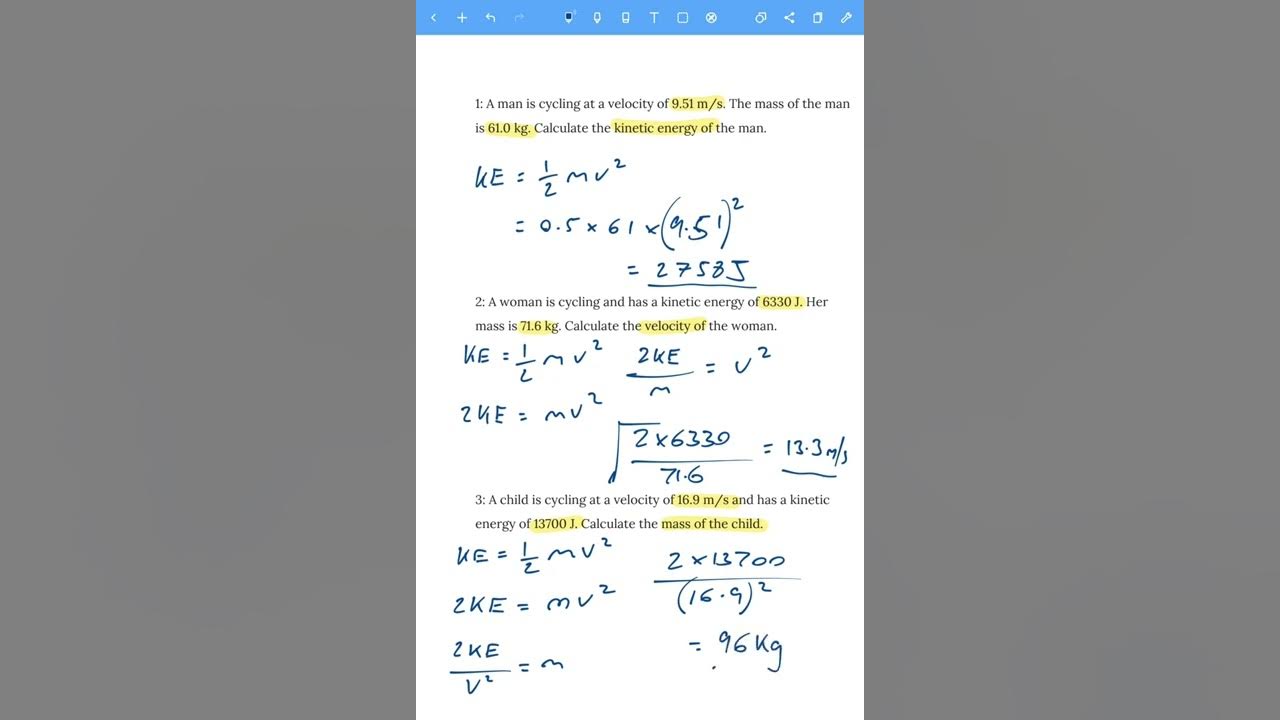 1: A man is cycling at a velocity of 9.51 m/s. The mass of the man
is 61.0 kg. Calculate the kinetic energy of the man.
KE = 1/2 mv²
= 0.5 × 61 × (9.51)²
= 2758J
2: A woman is cycling and has a kinetic energy of 6330 J. Her
mass is 71.6 kg. Calculate the velocity of the woman.
KE = 1/2 mv²
2KE/m = v²
2KE = mv²
√(2×6330/71.6) = 13.3 m/s
3: A child is cycling at a velocity of 16.9 m/s and has a kinetic
energy of 13700 J. Calculate the mass of the child.
KE = 1/2 mv²
2 × 13700/(16.9)²
2KE = mv²
= 96 Kg
2KE/V² = m